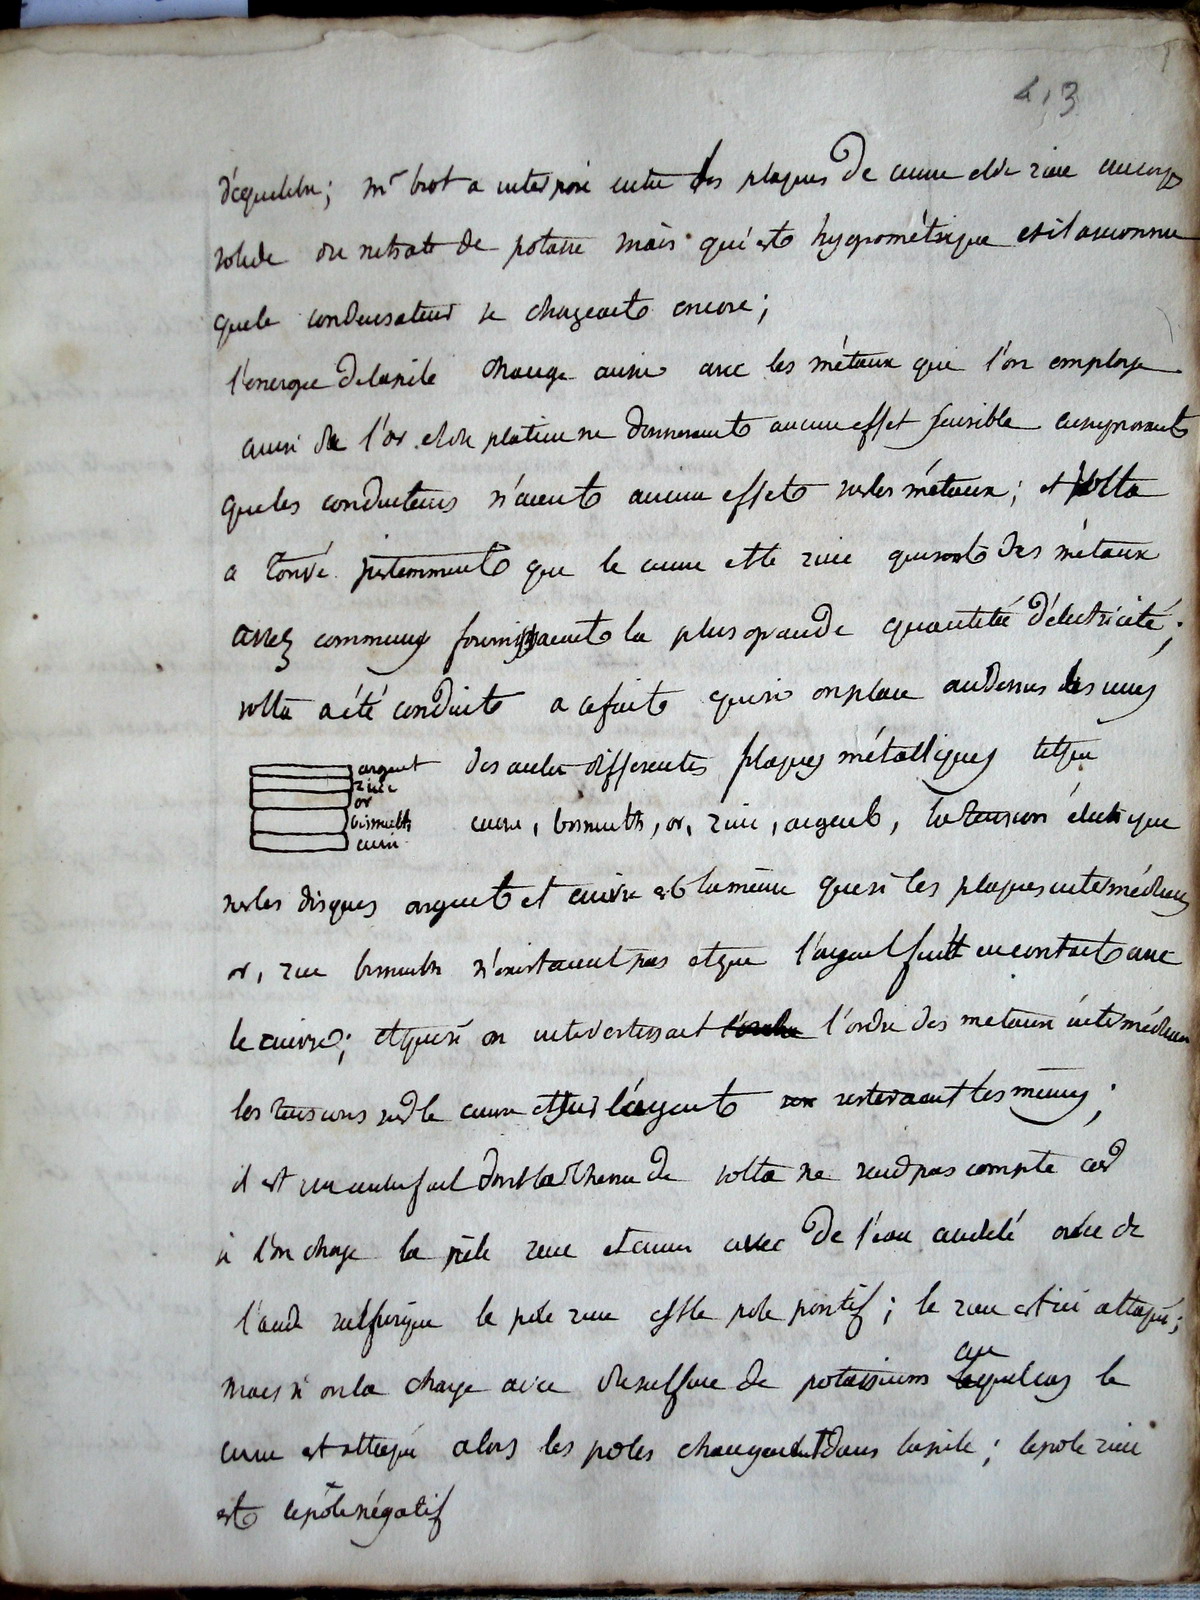 413
d'équilibre; mr biot a interposé entre des plaques de cuivre et de zinc un corps
solide du nitrate de potasse mais qui est hygrométrique et il a reconnu
que le condensateur se chargeait encore;
l'énergie de la pile change aussi avec les métaux que l'on employe
ainsi de l'or et du platine ne donneraient aucun effet sensible en supposant
que les conducteurs n'aient aucun effet sur les métaux; et volta
a trouvé justemment que le cuivre et le zinc qui sont des métaux
assez communs fournissaient la plus grande quantité d'électricité;
volta a été conduit a ce fait que si on place au dessus les unes
des autres differentes plaques métalliques telles que
argent
zinc
or
bismuth
cuivre
cuivre, bismuth, or, zinc, argent, la tension électrique
sur les disques argent et cuivre est la même que si les plaques intermédiaires
or, zinc bismuth n'existaient pas et que l'argent fut en contact avec
le cuivre; et que si on intervertissait l'ordre l'ordre des métaux intermédiaires
les tensions sur le cuivre et sur l'argent resteraient les mêmes;
il est un autre fait dont la théorie de volta ne rend pas compte car
si l'on charge la pile zinc et cuivre avec de l'eau acidulé avec de
l'acide sulfurique le pole zinc est le pole positif; le zinc est ici attaqué;
mais si on la charge avec du sulfure de potassium au quel cas le
cuivre est attaqué alors les poles changent dans la pile; le pole zinc
est le pôle négatif